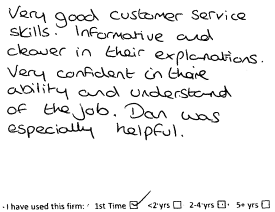 Very good customer service
skills. Informative and
cleaver in their explanations.
Very confident in thaire
ability and understand
of the job. Dan was
especially helpful.
I have used this firm: 1st Time ☑ <2 yrs ☐ 2-4 yrs ☐ 5+ yrs ☐